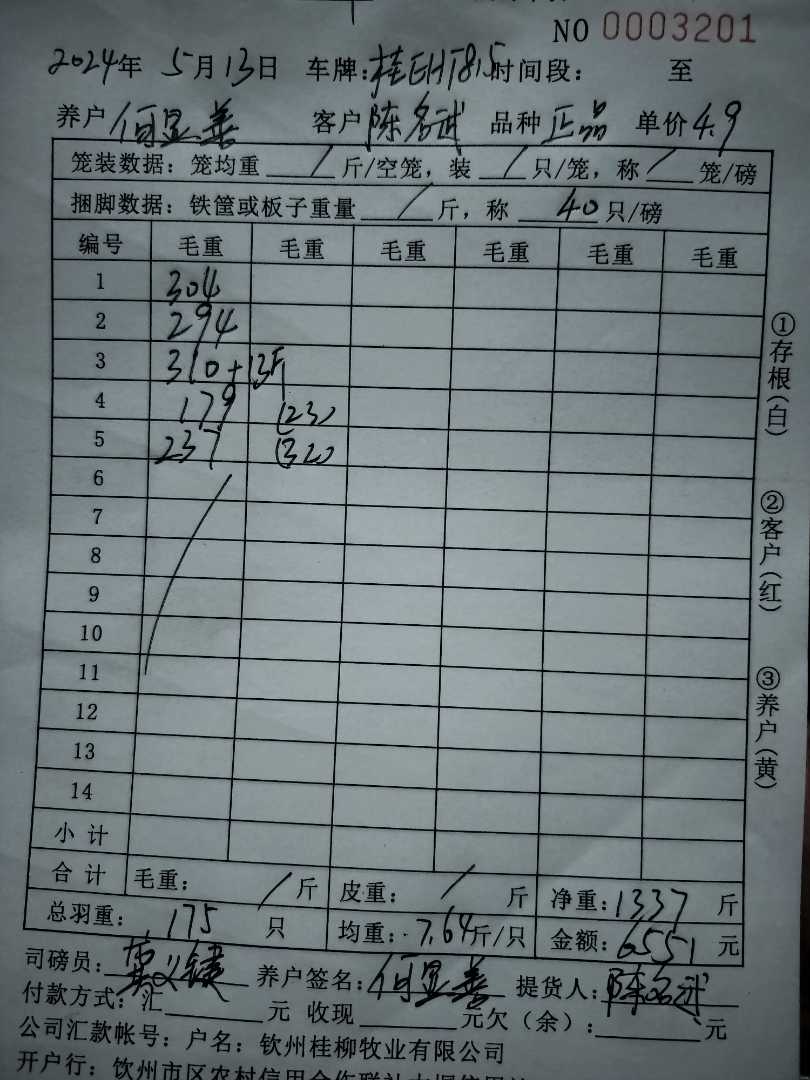 NO 0003201
2024年 5月13日 车牌:桂EHT815 时间段: 至
养户 何显善 客户 陈名武 品种 正品 单价 4.9
笼装数据:笼均重 / 斤/空笼,装 / 只/笼,称 / 笼/磅
捆脚数据:铁筐或板子重量 / 斤,称 40 只/磅
编号 毛重 毛重 毛重 毛重 毛重 毛重
1 304
2 294
3 310+13斤
4 179 (23)
5 237 (32)
6
7
8
9
10
11
12
13
14
小计
合计 毛重: / 斤 皮重: / 斤 净重:1337 斤
总羽重: 175 只 均重: 7.64 斤/只 金额: 6551 元
司磅员: 养户签名:何显善 提货人:陈名武
付款方式:汇 元 收现 元欠(余): 元
公司汇款帐号:户名:钦州桂柳牧业有限公司
开户行:钦州市区农村信用合作联社
①存根(白)
②客户(红)
③养户(黄)